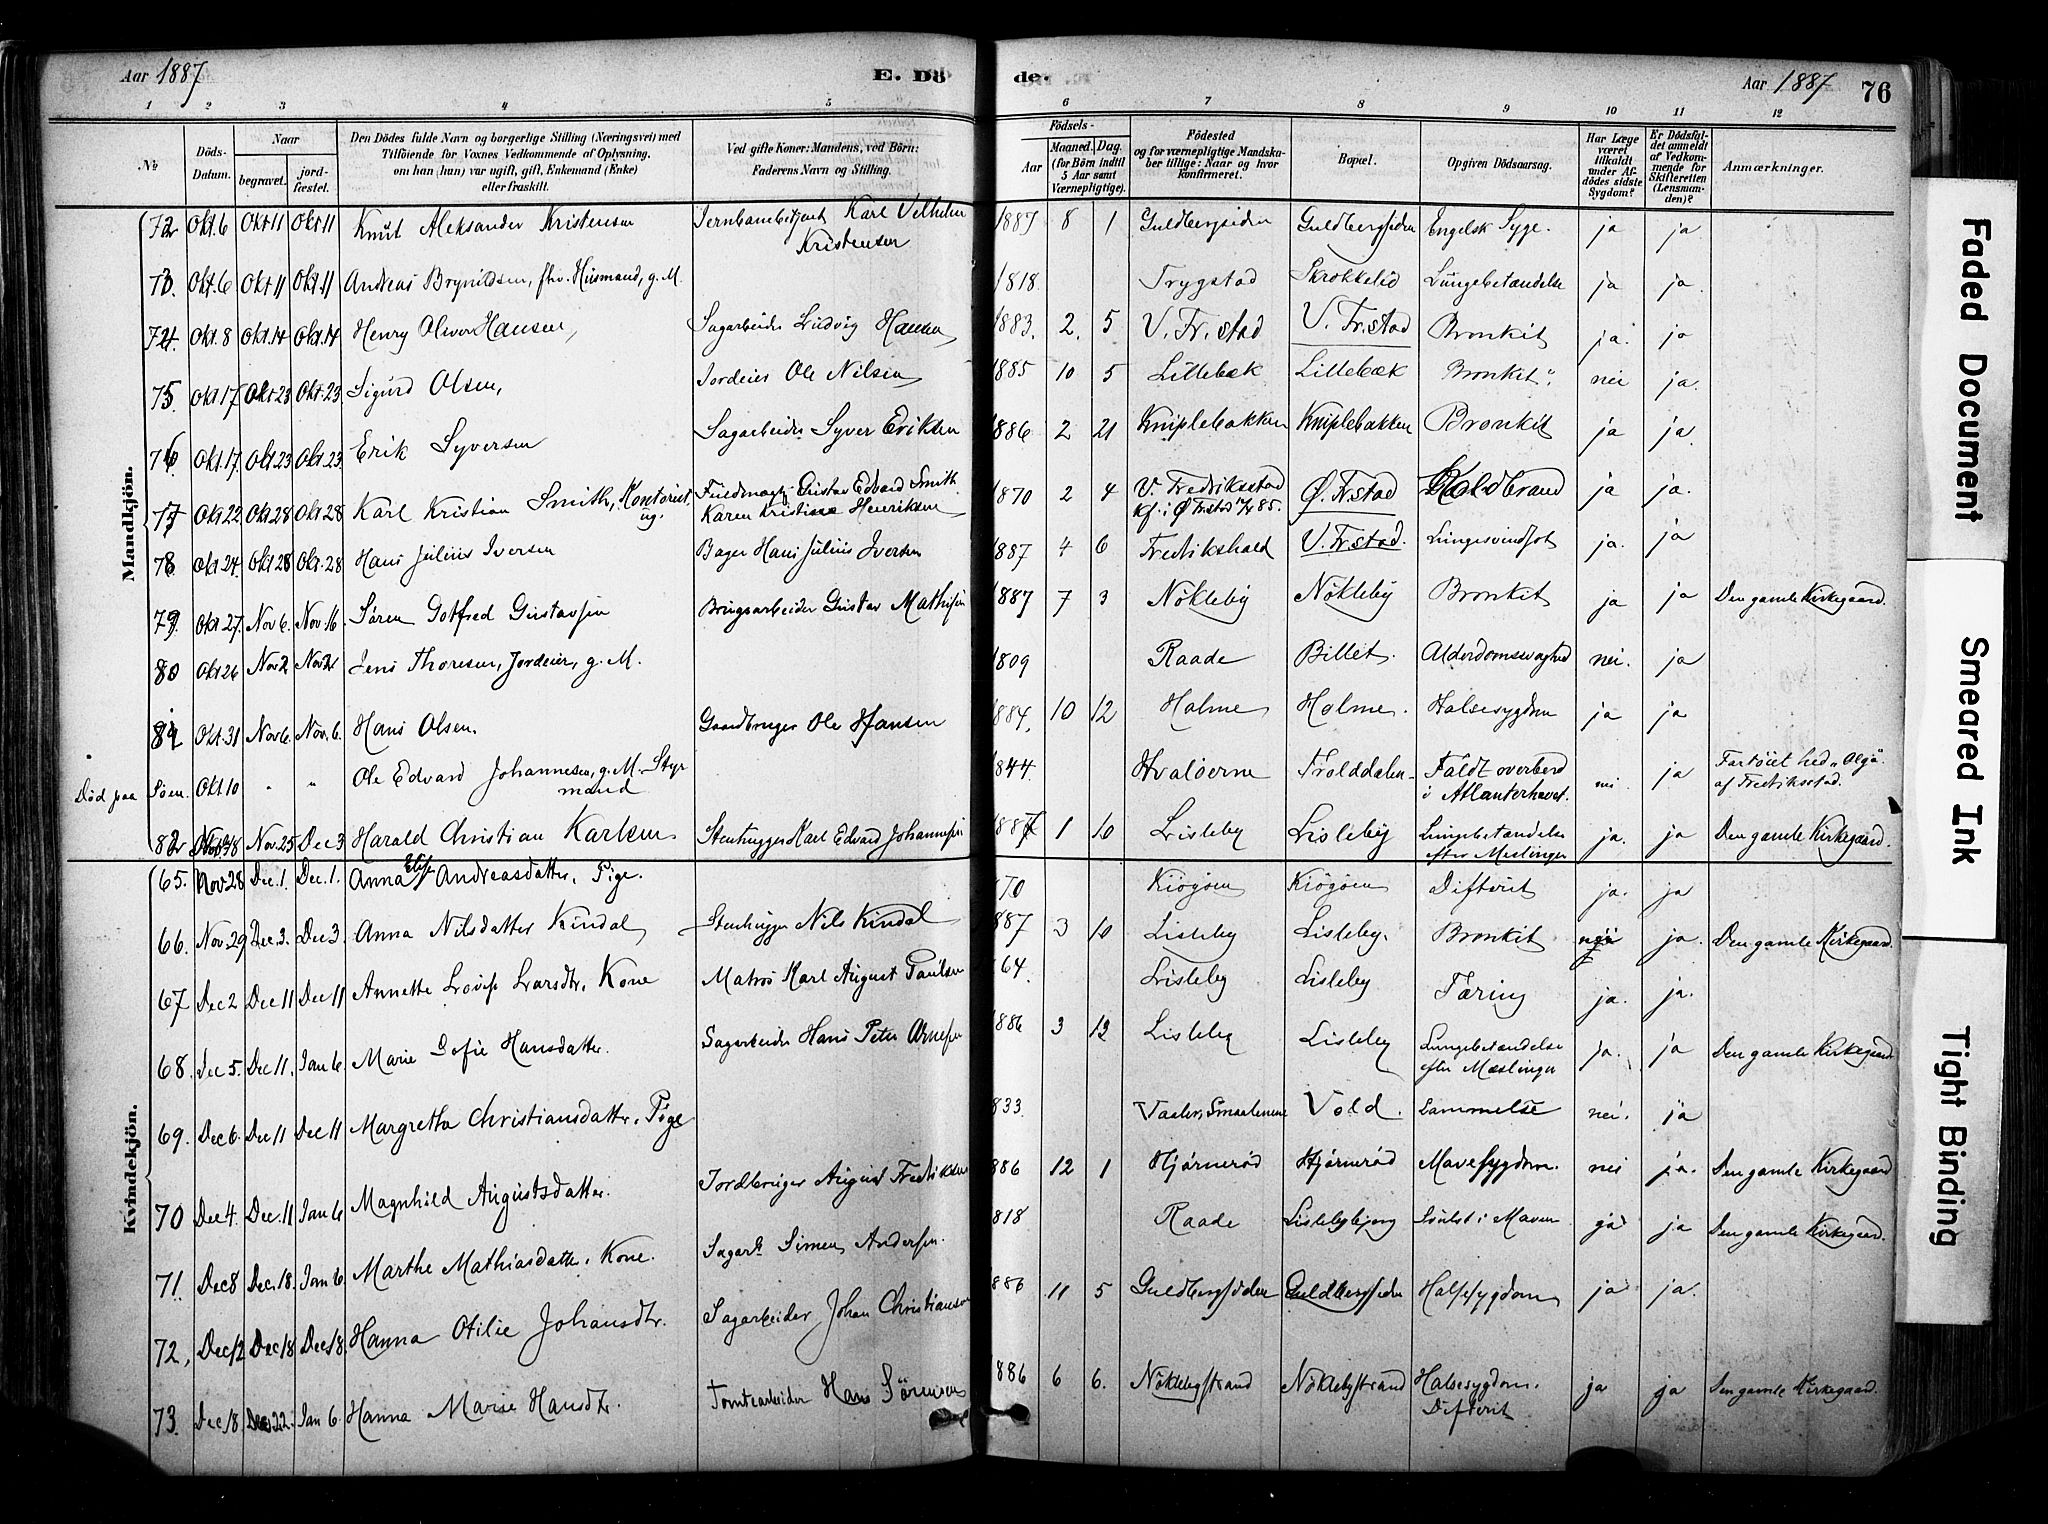 Aar 1887
E. Dö
de.
Aar 1887
76
1 2 3 4 5 6 7 8 9 10 11 12
No
Döds-Datum.
Naar
begravet.
jordfæstet.
Den Dödes fulde Navn og borgerlige Stilling (Næringsvei) med
Tilföiende for Voxnes Vedkommende af Oplysning,
om han (hun) var ugift, gift, Enkemand (Enke)
eller fraskilt.
Ved gifte Koner: Mandens, ved Börn:
Faderens Navn og Stilling.
Födsels-
Aar
Maaned. Dag.
(for Börn indtil
5 Aar samt
Værnepligtige).
Födested
og for værnepligtige Mandskaber tillige: Naar og hvor
Konfirmeret.
Bopæl.
Opgiven Dödsaarsag.
Har Læge været tilkaldt under Afdödes sidste Sygdom?
Er Dödsfaldet anmeldt af Vedkommende for Skifteretten (Lensmanden)?
Anmærkninger.
Mandkjön.
72 Okt.6 Okt 11 Okt 11 Knut Aleksander Kristensen Jernbanebetjent Karl Vilhelm Kristensen 1887 8 1 Guldbergsiden Guldbergsiden Engelsk Syge. ja ja
73. Okt.6 Okt 11 Okt.11 Andreas Brynildsen, fhv. Husmand, g. M. 1818. Trygstad Skrokkelid Lungebetændelse ja ja.
74. Okt.8 Okt.14 Okt.14 Henry Oliver Hansen, Sagarbeider Ludvig Hansen 1883. 2. 5 V. Fr.stad V. Fr.stad Bronkit ja. ja
75 Okt 17 Okt 23 Okt.23 Sigurd Olsen, Jordeier Ole Nilsen 1885 10 5 Lillebæk Lillebæk Bronkit. nei ja.
76 Okt.17. Okt.23 Okt.23. Erik Syversen Sagarbeider Syver Eriksen 1886 2 21 Kniplebakken Kniplebakken Bronkit ja ja.
77 Okt 22 Okt 28 Okt 28 Karl Kristian Smith, Kontorist, ug. Fuldmægtig Gustav Edvard Smith. Karen Kristine Henriksen 1870 2 4 V. Fredriksstad kf. i Ø Frstad 85. Ø. Frstad Koldbrand ja ja.
78. Okt 24. Okt 28 Okt.28 Hans Julius Iversen Bager Hans Julius Iversen 1887 4 6 Fredrikshald V. Frstad. Lungesvindsot ja. ja
79. Okt.27. Nov 6. Nov.16. Søren Gotfred Gustavsen Brugsarbeider Gustav Mathisen 1887 7 3 Nökleby Nökleby Bronkit ja ja Den gamle Kirkegaard.
80 Okt 26 Nov.2 Nov.2 Jens Thoresen, Jordeier, g. M. 1809 Raade Billet. Alderdomssvaghed nei. ja
81 Okt.31 Nov 6. Nov. 6. Hans Olsen. Gaardbruger Ole Hansen 1884. 10 12 Holme Holme. Halsesygdom ja ja
Död paa Søen. Okt 10 " " Ole Edvard Johannesen, g. M. Styrmand 1844 Hvaløerne Trolddalen Faldt overbord i Atlanterhavet. nei ja Fartöiet hed „Olga" af Fredriksstad.
82 Nov. 18 Nov. 25 Dec 3 Harald Christian Karlsen Stenhugger Karl Edvard Johannesen 1887 1 10 Lisleby Lisleby Lungebetændelse efter Meslinger ja. ja Den gamle Kirkegaard.
Kvindekjön.
65. Nov 28 Dec. 1. Dec. 1. Anna Elise Andreasdatter, Pige. 70 Kiøgøen Kiøgøen Difterit ja. ja
66. Nov. 29 Dec. 3. Dec 3. Anna Nilsdatter Kindal Stenhugger Nils Kindal 887 3 10 Lisleby Lisleby. Bronkit nei ja. Den gamle Kirkegaard.
67 Dec 2 Dec 11 Dec 11 Annette Lovise Larsdtr, Kone Matros Karl August Paulsen 64 Lisleby Lisleby Tæring ja. ja.
68. Dec 5. Dec 11. Jan 6. Marie Sofie Hansdatter. Sagarbeider Hans Peter Arnesen 1886 3 12 Lisleby Lisleby Lungebetændelse efter Mæslinger ja. ja Den gamle Kirkegaard
69. Dec 6. Dec 11 Dec 11 Margretha Christiansdatter. Pige 833. Vaaler, Smaalenene Vold. Lammelse nei. ja
70 Dec 4. Dec. 11 Jan 6 Magnhild Augustsdatter. Jordbruger August Fredriksen 886 12 1 Hjørnerød Hjørnerød Mavesygdom. nei ja. Den gamle Kirkegaard
71. Dec 8 Dec. 18. Jan 6. Marthe Mathiasdatter. Kone. Sagarb. Simen Andersen. 818 Raade Lislebybjerg Svulst i Maven ja ja Den gamle Kirkegaard.
72. Dec 12 Dec 18 Dec 18. Hanna Otilie Johansdtr. Sagarbeider Johan Christiansen 886 11 5 Guldbergsiden Guldbergsiden Halsesygdom ja ja.
73. Dec 18. Dec 22. Jan 6. Hanna Marie Hansdtr. Tomtearbeider Hans Sörensen 886 6 6. Nöklebystrand Nöklebystrand Halsesygdom. Difterit ja ja Den gamle Kirkegaard.
Faded Document
Smeared Ink
Tight Binding